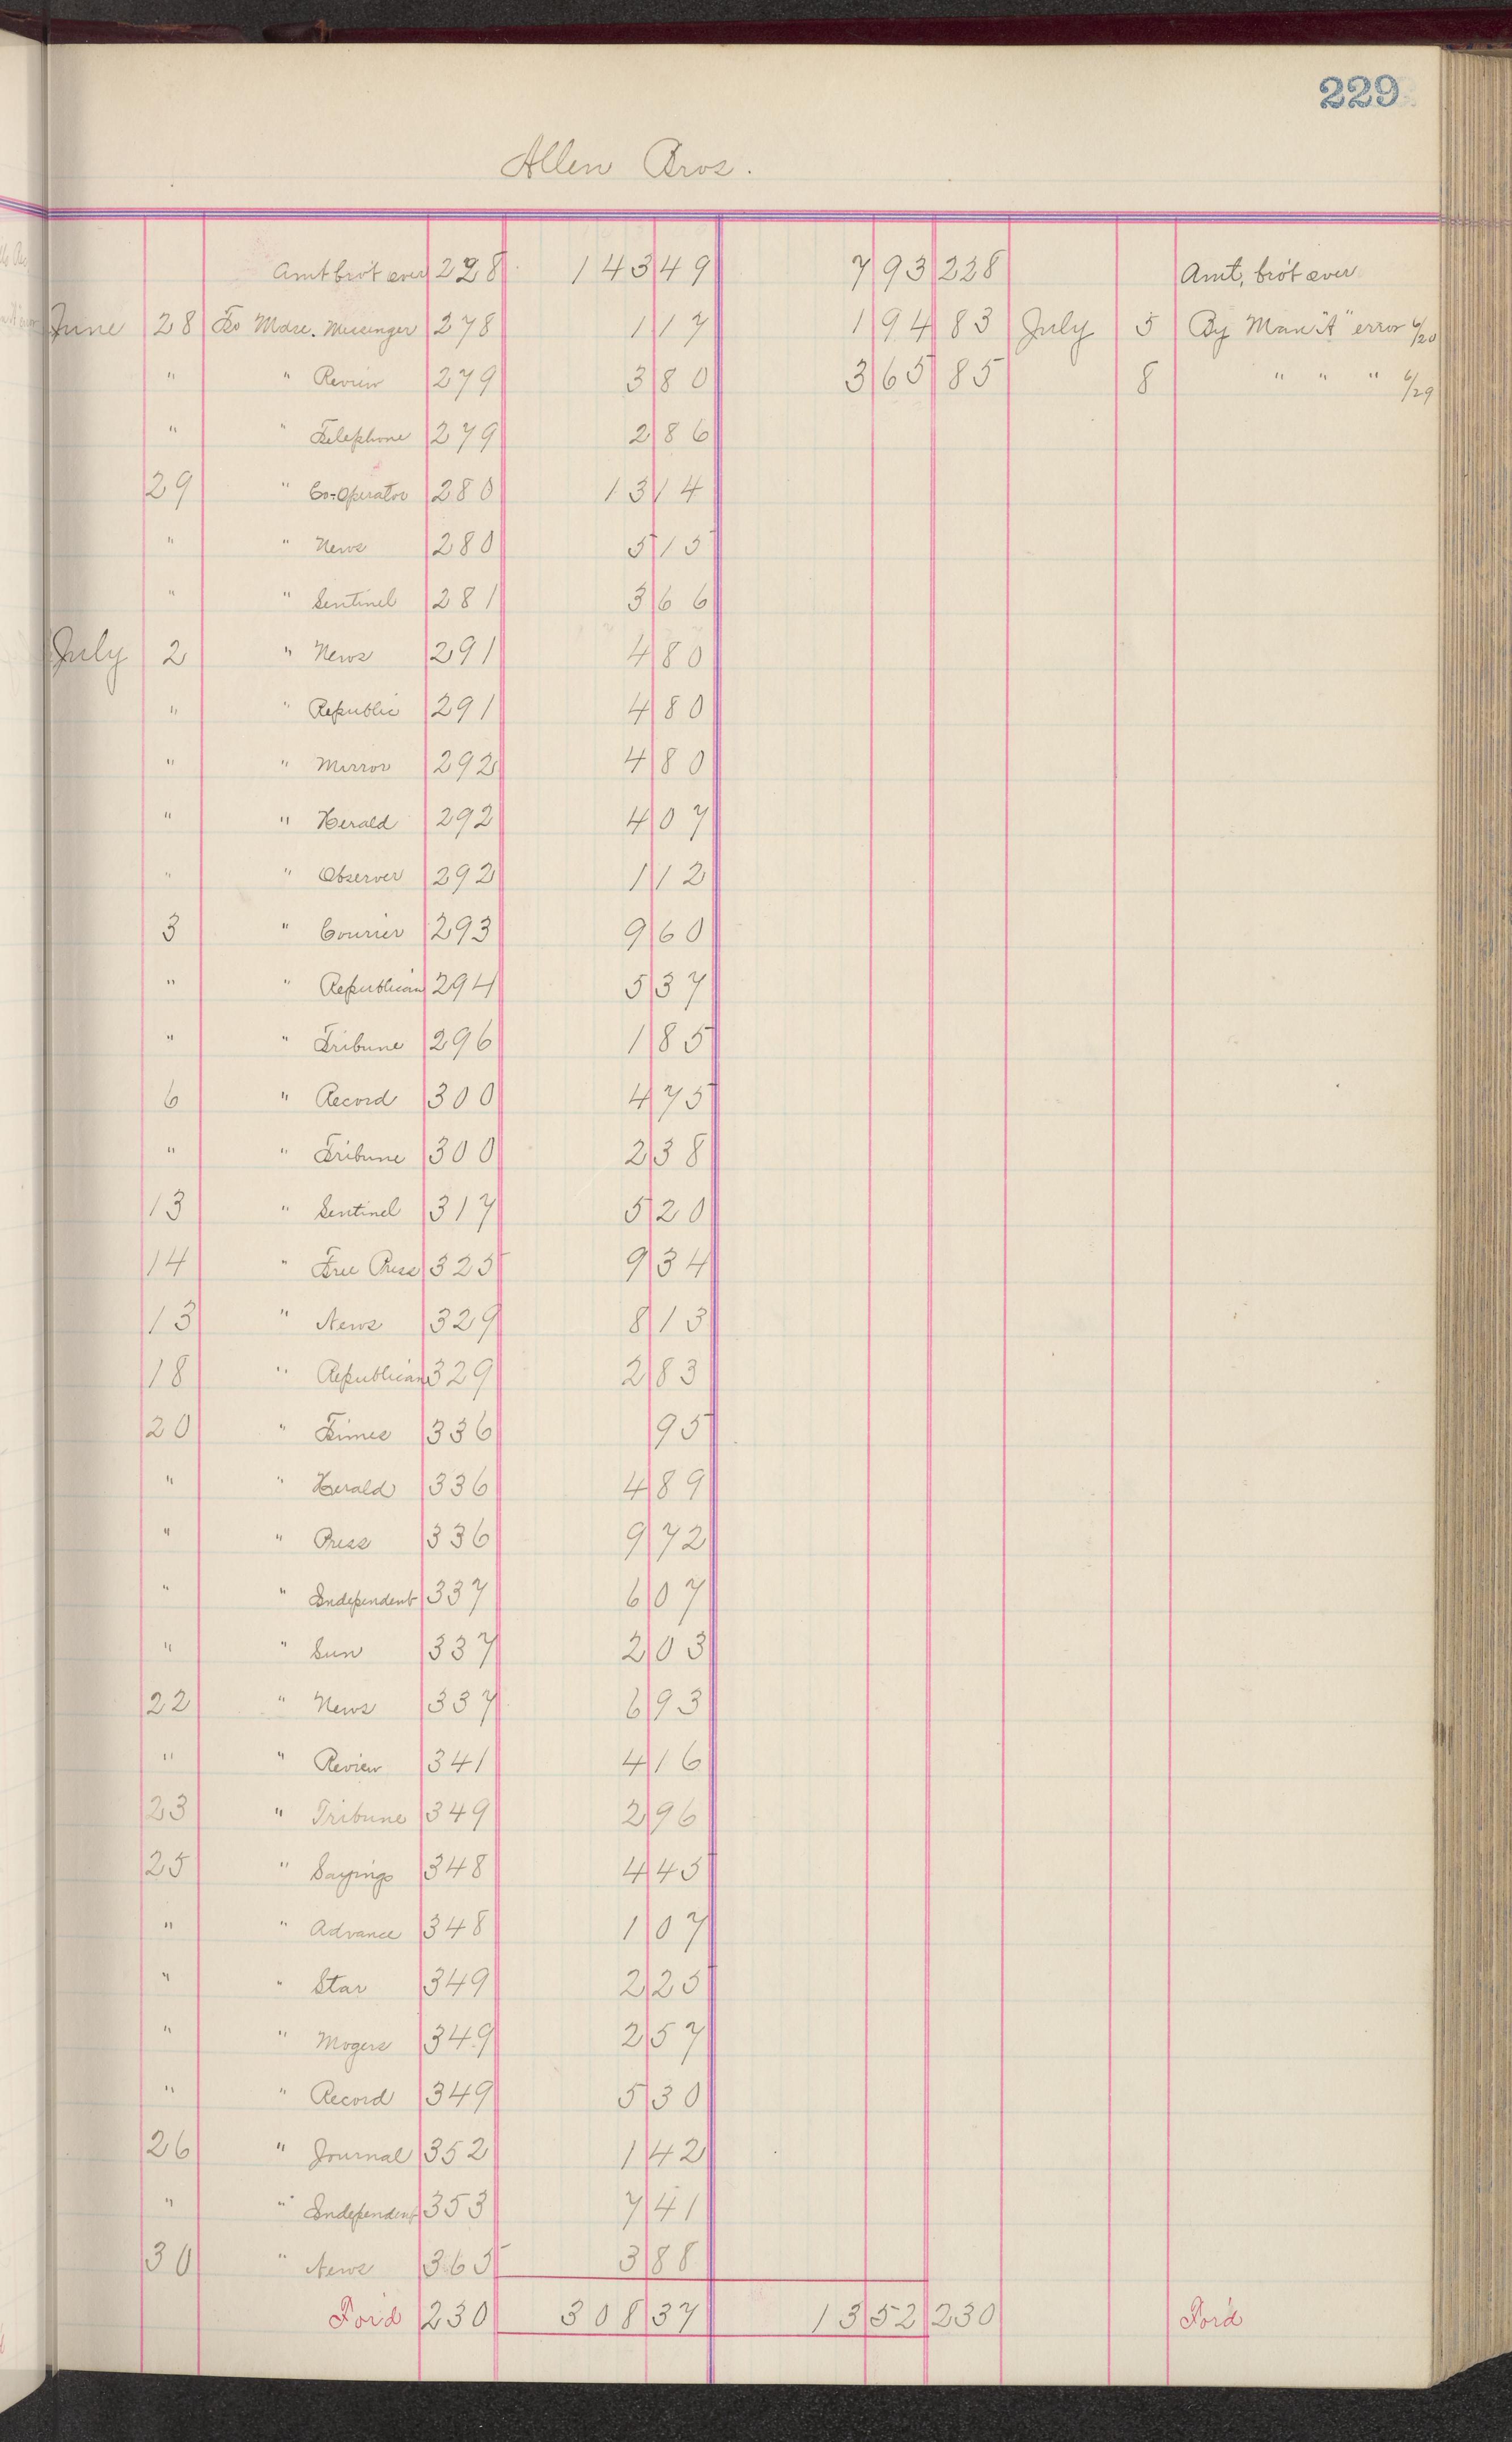 229
Allen Bros.
Amt brot over 228 143 49 7 93 228 Amt, brot over
June 28 To Mdse. Messenger 278 1 17 1 94 83 July 5 By Man "A" error 6/20
" " Review 279 3 80 3 65 85 8 " " " 6/29
" " Telephone 279 2 86
29 " Co-Operator 280 13 14
" " News 280 5 15
" " Sentinel 281 3 66
July 2 " News 291 4 80
" " Republic 291 4 80
" " Mirror 292 4 80
" " Herald 292 4 07
" " Observer 292 1 12
3 " Courier 293 9 60
" " Republican 294 5 37
" " Tribune 296 1 85
6 " Record 300 4 75
" " Tribune 300 2 38
13 " Sentinel 317 5 20
14 " Free Press 325 9 34
13 " News 329 8 13
18 " Republican 329 2 83
20 " Times 336 95
" " Herald 336 4 89
" " Press 336 9 72
" " Independent 337 6 07
" " Sun 337 2 03
22 " News 337 6 93
" " Review 341 4 16
23 " Tribune 349 2 96
25 " Sayings 348 4 45
" " Advance 348 1 07
" " Star 349 2 25
" " Mogers 349 2 57
" " Record 349 5 30
26 " Journal 352 1 42
" " Independent 353 7 41
30 " News 365 3 88
For'd 230 308 37 13 52 230 For'd